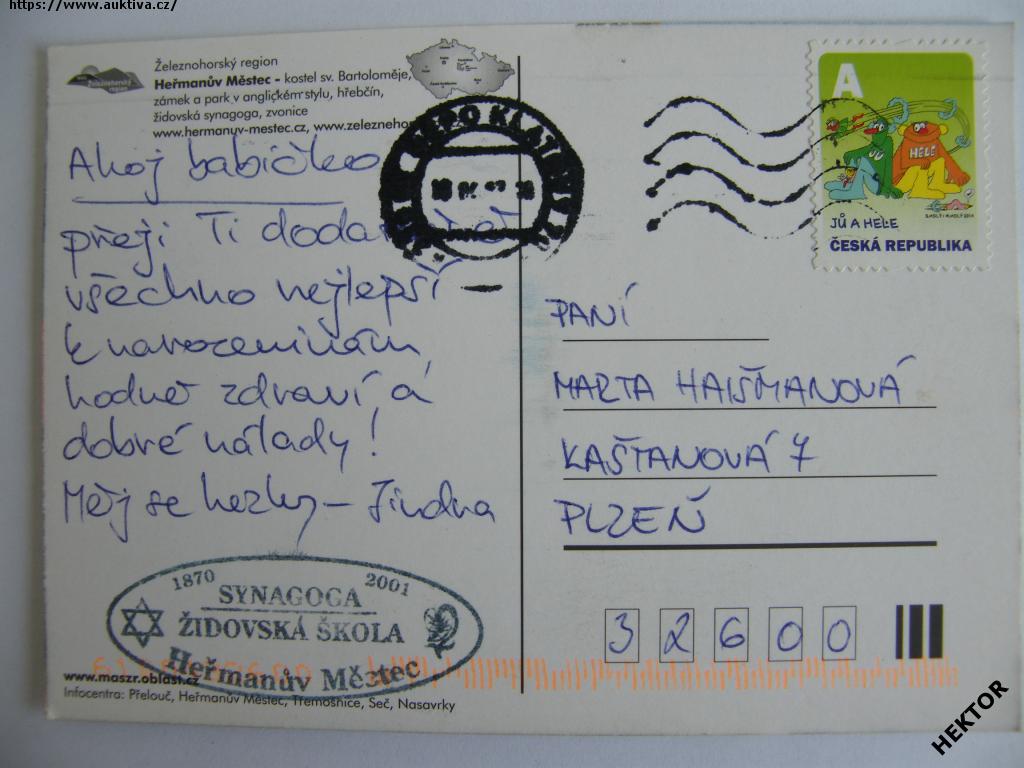 https://www.auktiva.cz/
Železnohorský region
Heřmanův Městec - kostel sv. Bartoloměje,
zámek a park v anglickém stylu, hřebčín,
židovská synagoga, zvonice
www.hermanuv-mestec.cz,
Ahoj babičko
přeji Ti
všechno nejlepší –
k narozeninám,
hodně zdraví a
dobré nálady!
Měj se hezky – Jindra
1870 2001
SYNAGOGA
ŽIDOVSKÁ ŠKOLA
Heřmanův Městec
www.maszr.oblast.cz
Infocentra: Přelouč, Heřmanův Městec, Třemošnice, Seč, Nasavrky
DEPO KLATOVY
A
HELE
JŮ A HELE
ČESKÁ REPUBLIKA
PANÍ
MARTA HAIŠMANOVÁ
KAŠTANOVÁ 7
PLZEŇ
32600
HEKTOR